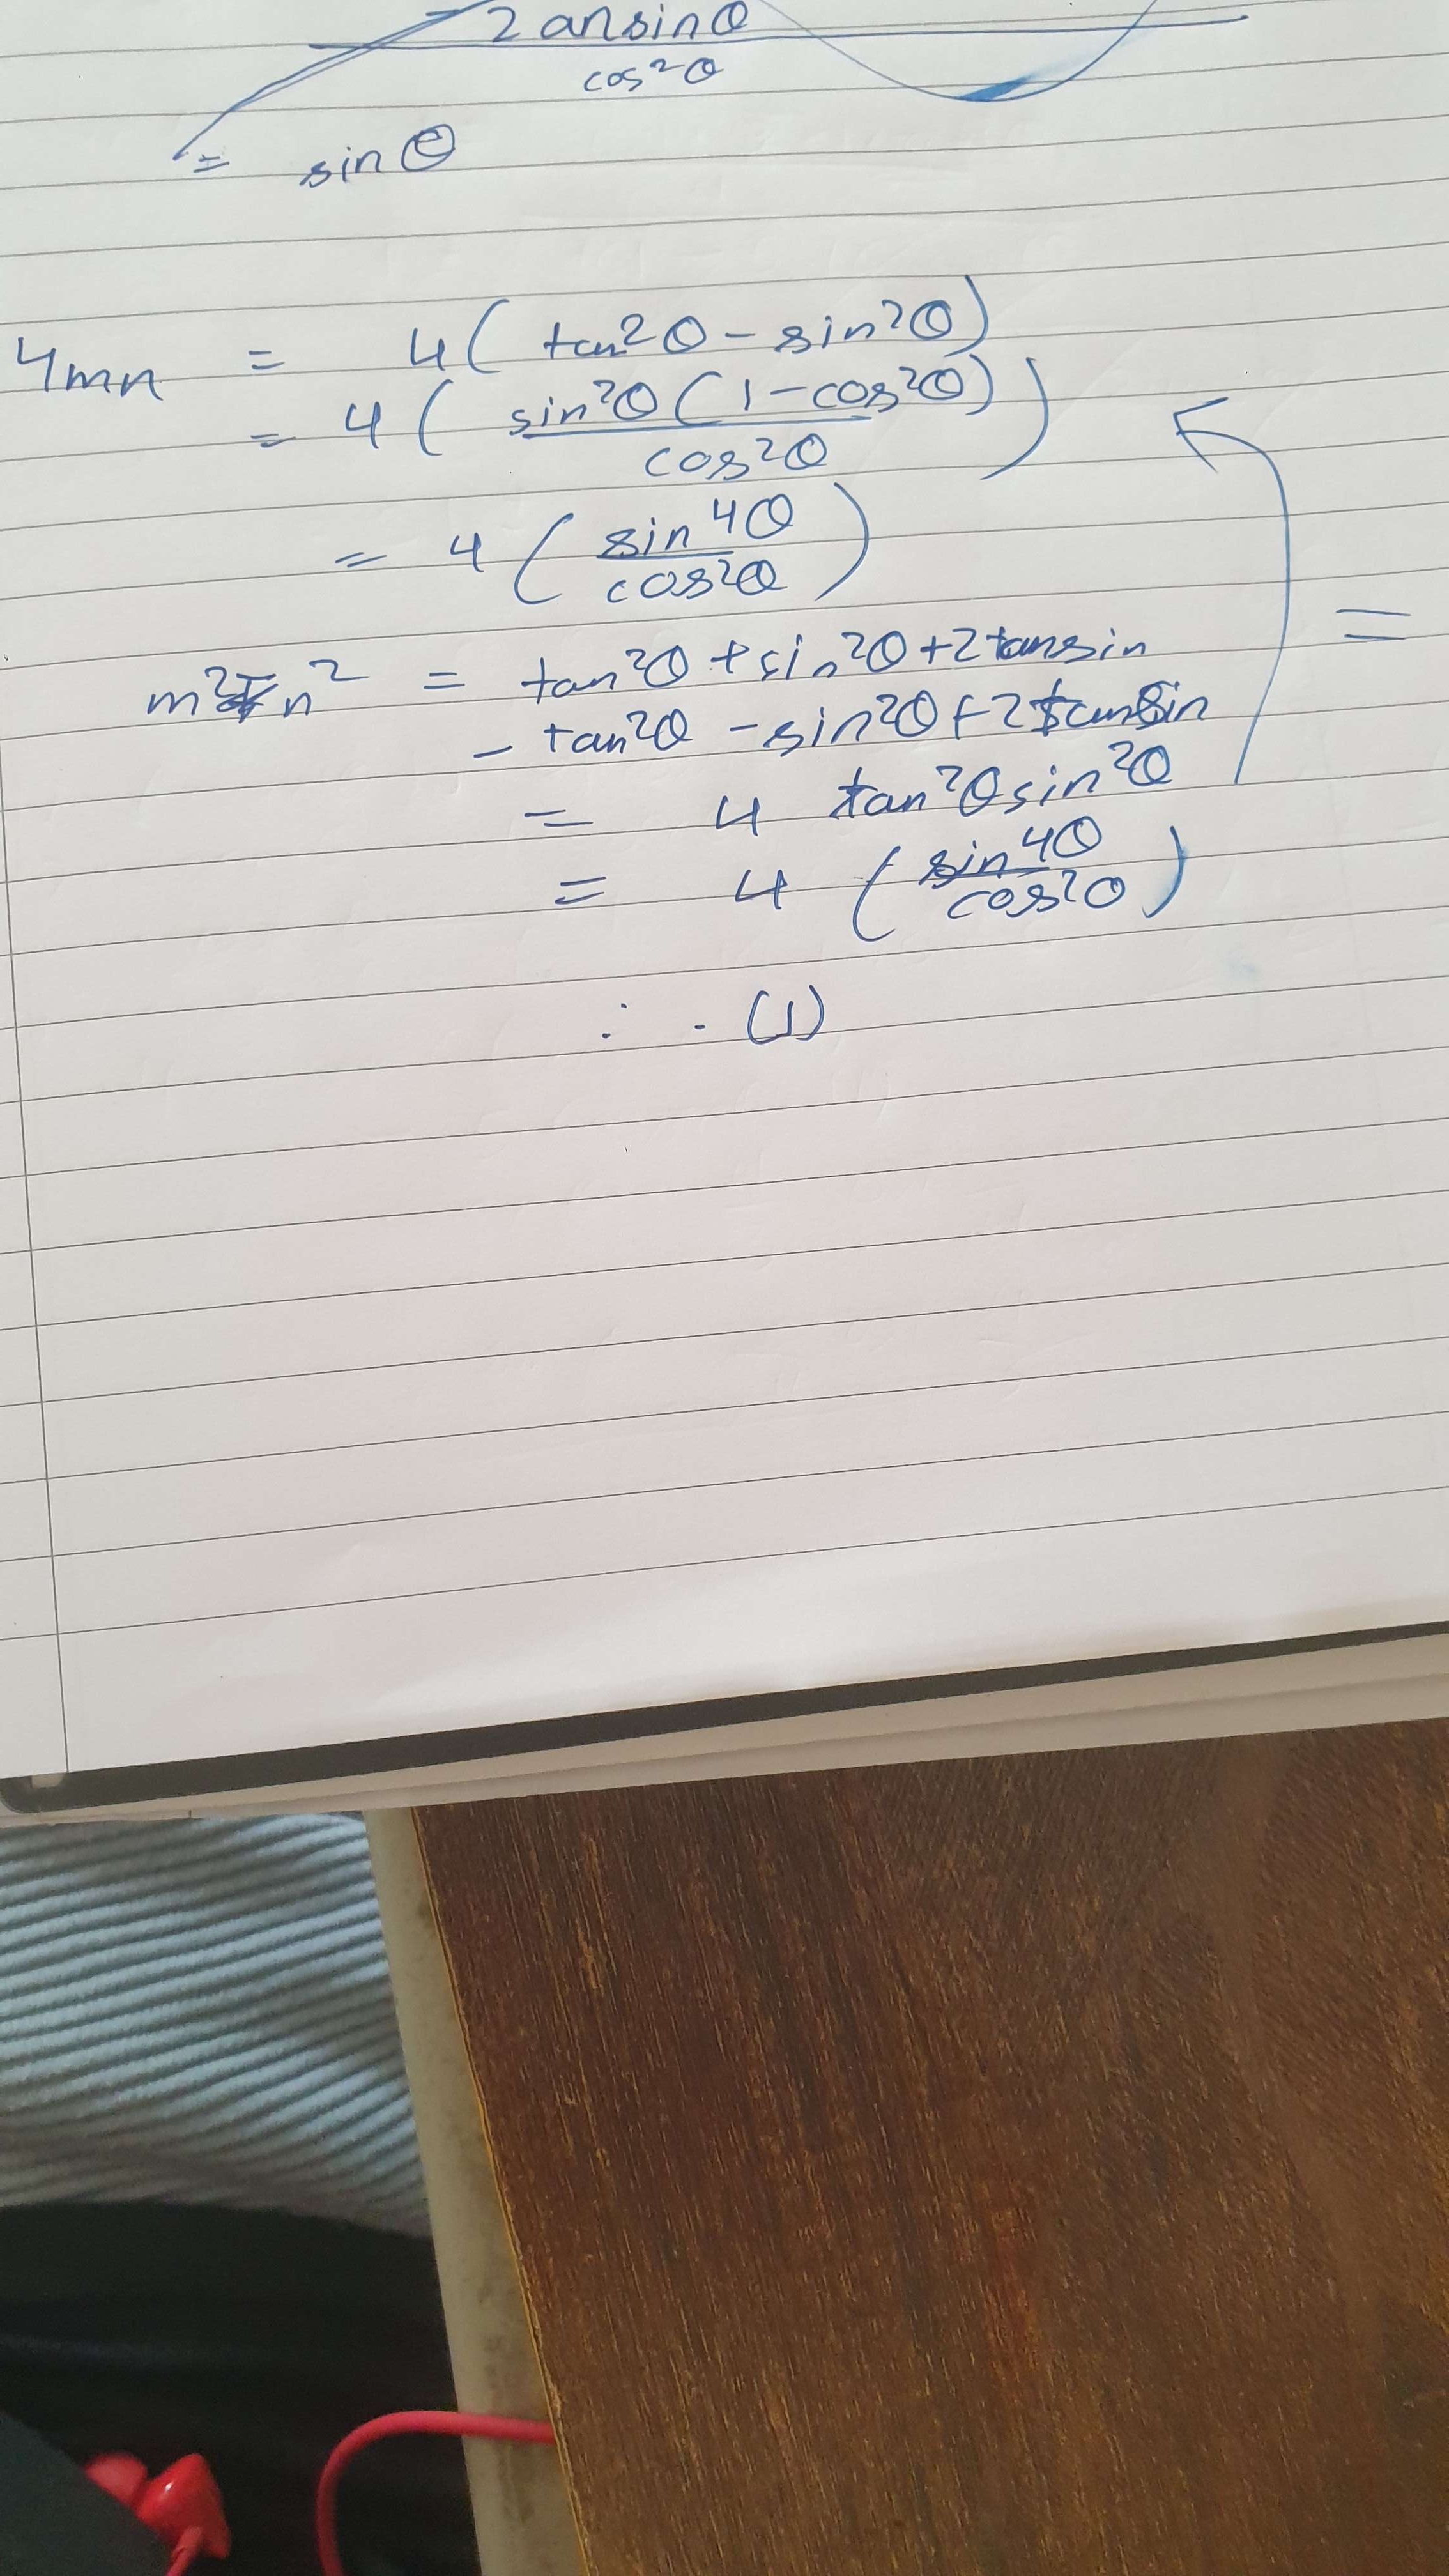 2 tansinθ
cos²θ
= sinθ
4mn = 4( tan²θ - sin²θ)
= 4( sin²θ(1-cos²θ) )
cos²θ
= 4 ( sin⁴θ )
cos²θ
m² - n² = tan²θ + sin²θ + 2tansin
- tan²θ - sin²θ + 2tansin
=
= 4 tan²θsin²θ
= 4 ( sin⁴θ )
cos²θ
∴ . (1)